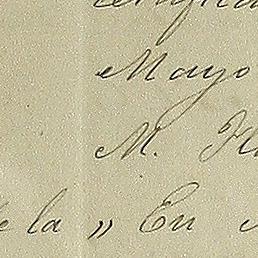 Mayo
M.
de la " En